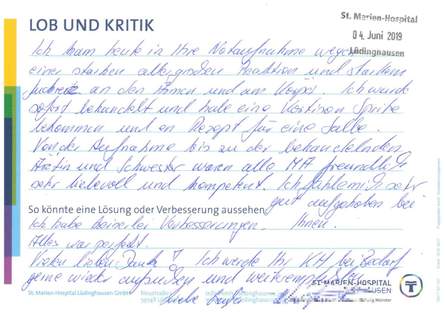 LOB UND KRITIK
St. Marien-Hospital
04. Juni 2019
Lüdinghausen
Ich kam heute in Ihre Notaufnahme wegen
einer starken allergischen Reaktion und starkem
an den Armen und am Körper. Ich wurde
sofort behandelt und habe eine Kortison Spritze
bekommen und ein Rezept für eine Salbe.
Von der Aufnahme bis zu der behandelnden
Ärztin und Schwester waren alle MA freundlich
sehr liebevoll und kompetent. Ich fühlte mich sehr
gut aufgehoben bei
Ihnen.
So könnte eine Lösung oder Verbesserung aussehen
Ich habe keinerlei Verbesserungen.
Alles war perfekt.
Vielen lieben Dank! Ich werde Ihr KH bei Bedarf
gerne wieder aufsuchen und weiterempfehlen
Liebe Grüße
St. Marien-Hospital Lüdinghausen GmbH
ST. MARIEN-HOSPITAL
LÜDINGHAUSEN